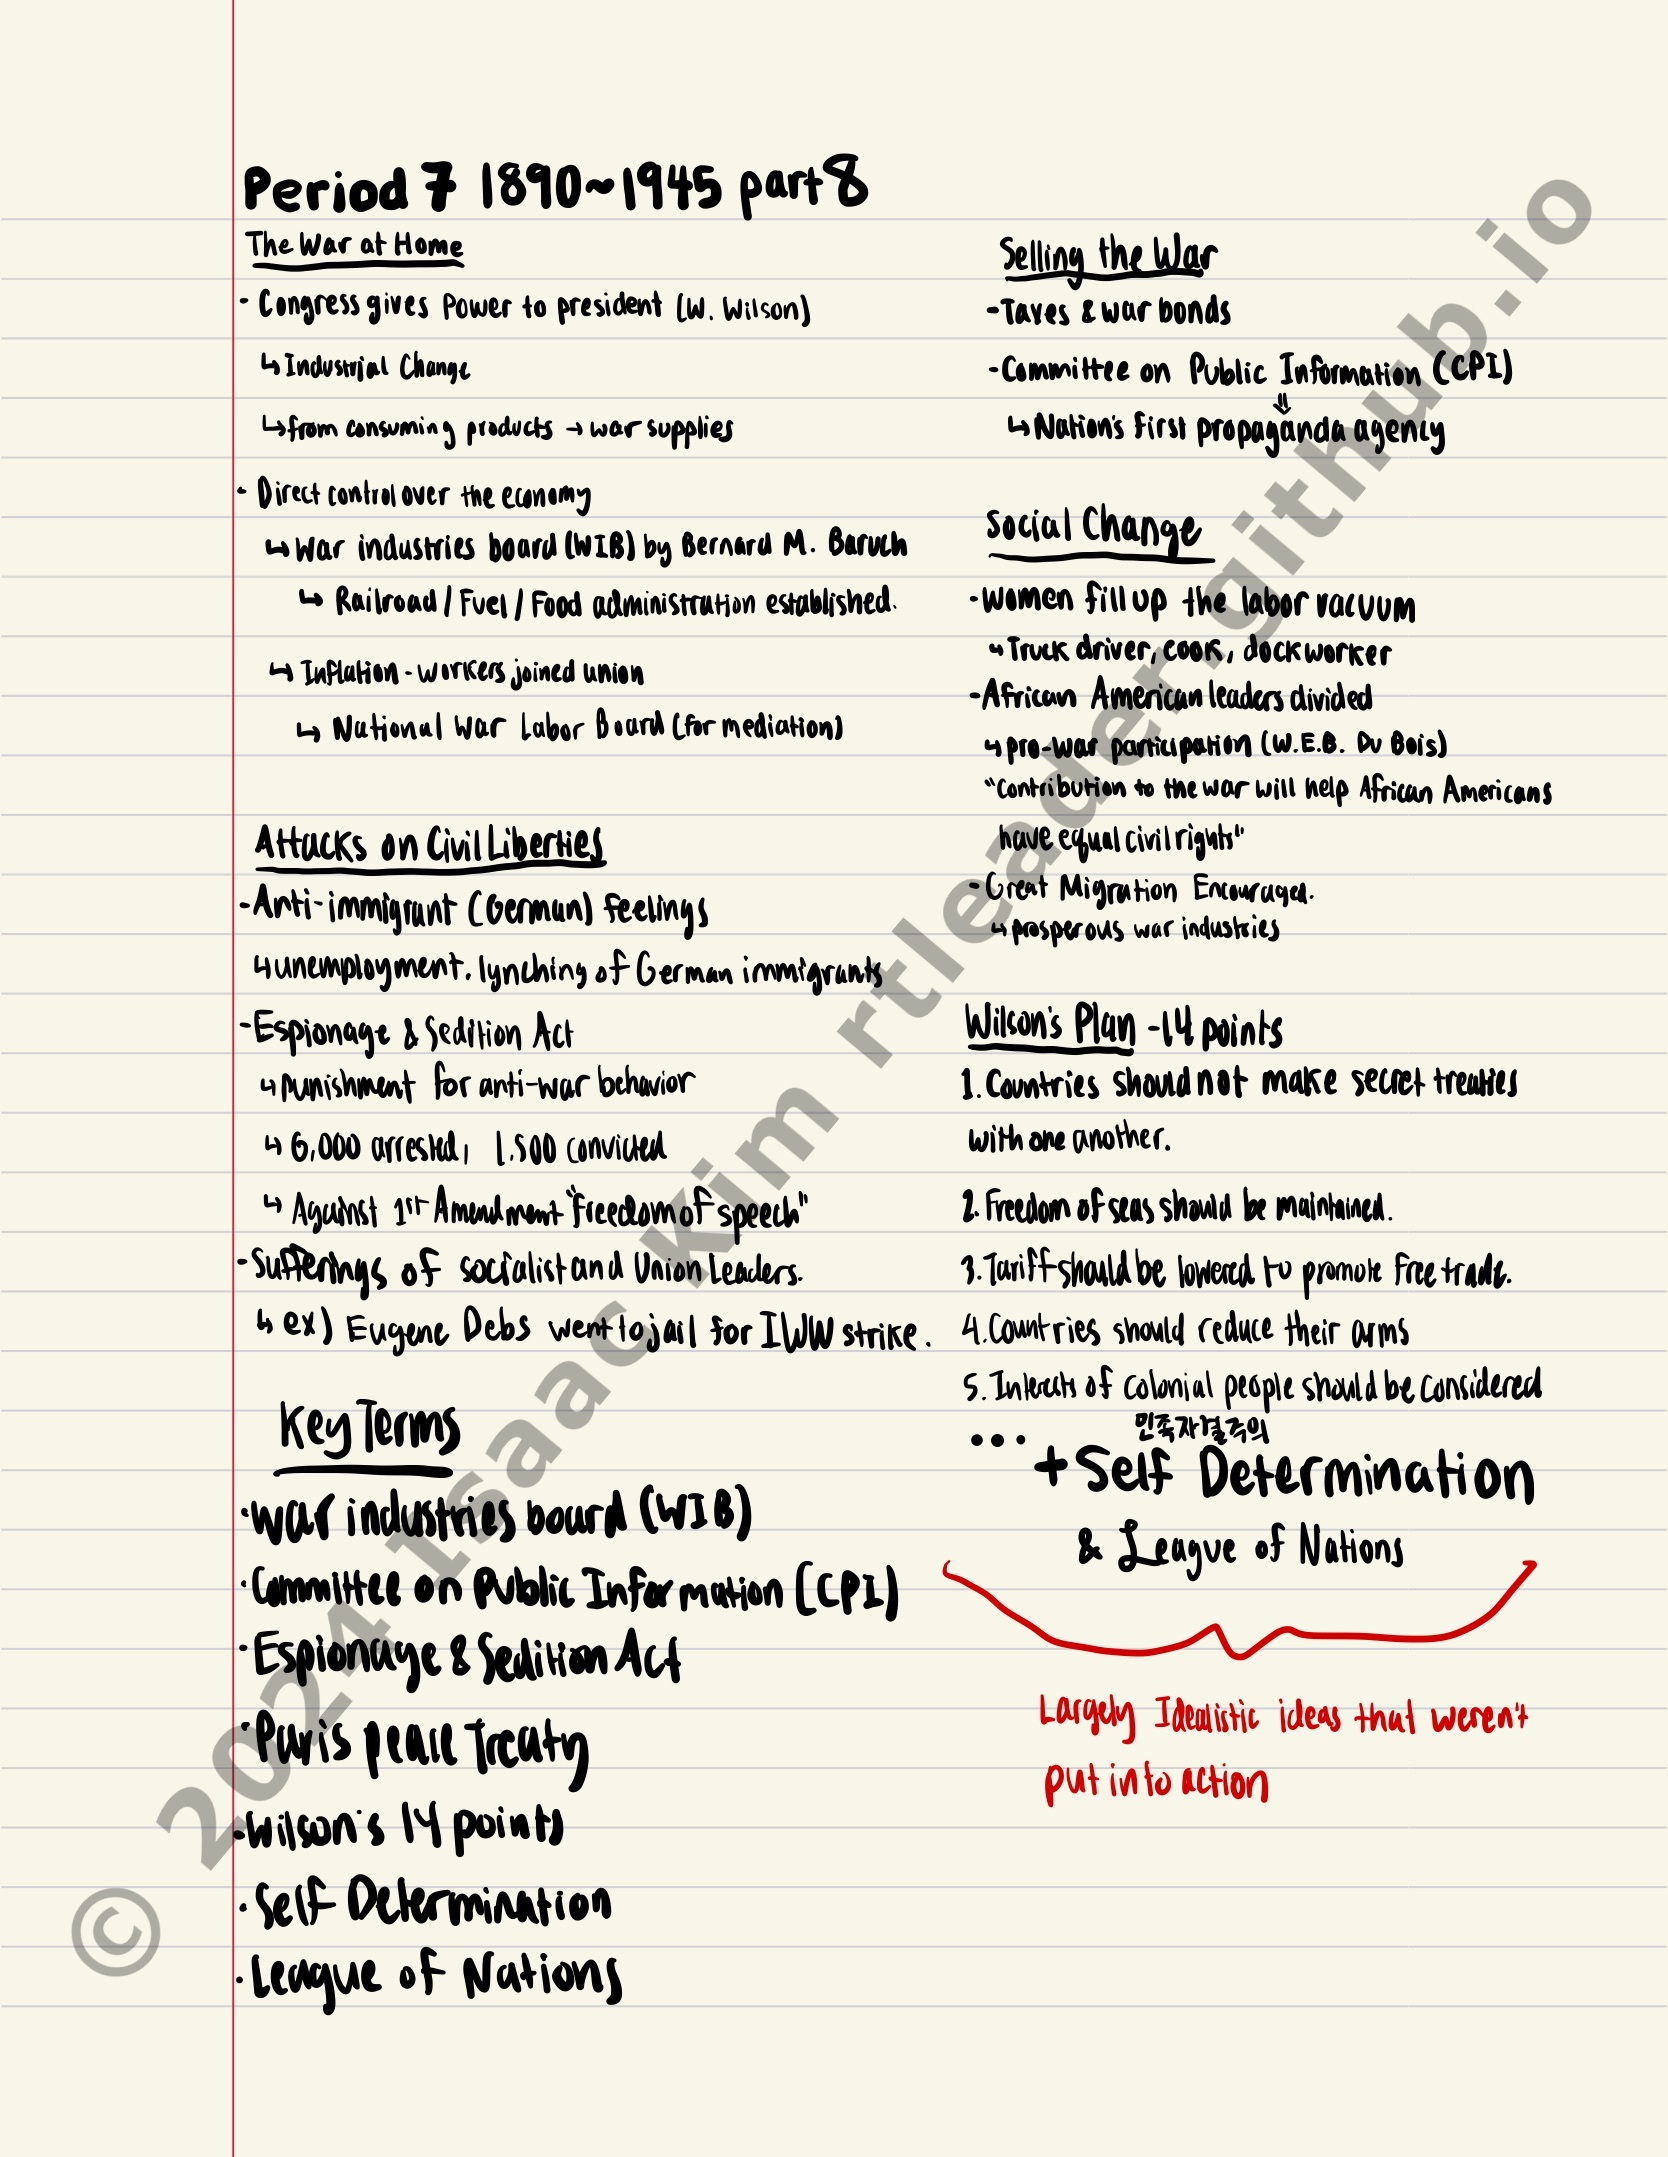 Period 7 1890~1945 part 8
The War at Home
- Congress gives Power to president (W. Wilson)
↳ Industrial Change
↳ from consuming products → war supplies
- Direct control over the economy
↳ War industries board (WIB) by Bernard M. Baruch
↳ Railroad / Fuel / Food administration established.
↳ Inflation - workers joined union
↳ National War Labor Board (for mediation)
Attacks on Civil Liberties
- Anti-immigrant (German) feelings
↳ unemployment. lynching of German immigrants
- Espionage & Sedition Act
↳ punishment for anti-war behavior
↳ 6,000 arrested, 1.500 convicted
↳ Against 1st Amendment "freedom of speech"
- Sufferings of socialist and Union Leaders.
↳ ex) Eugene Debs went to jail for IWW strike.
Key Terms
· War industries board (WIB)
· Committee on Public Information (CPI)
· Espionage & Sedition Act
· Paris peace Treaty
· Wilson's 14 points
· Self Determination
· League of Nations
Selling the War
- Taxes & war bonds
- Committee on Public Information (CPI)
⇓
↳ Nation's first propaganda agency
Social Change
- Women fill up the labor vacuum
↳ Truck driver, cook, dockworker
- African American leaders divided
↳ pro-war participation (W.E.B. Du Bois)
"Contribution to the war will help African Americans
have equal civil rights"
- Great Migration Encouraged.
↳ prosperous war industries
Wilson's Plan - 14 points
1. Countries should not make secret treaties
with one another.
2. Freedom of seas should be maintained.
3. Tariff should be lowered to promote free trade.
4. Countries should reduce their arms
5. Interests of colonial people should be considered
민족자결주의
... + Self Determination
& League of Nations
Largely Idealistic ideas that weren't
put into action
© 2024 Isaac Kim rtleader.github.io